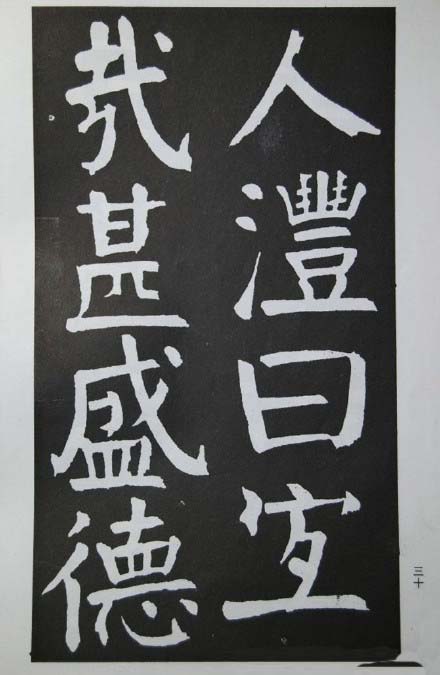 人灃曰宜
哉甚盛德
三十